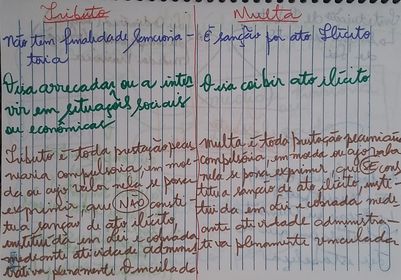 Tributo
Não tem finalidade sanciona-
tória
Visa arrecadar ou a inter
vir em situações sociais
ou econômicas
Tributo é toda prestação pecu
niaria compulsoria, em moe
da ou cujo valor nela se possa
exprimir, que NÃO consti-
tua sanção de ato ilícito,
instituida em lei e cobrada
mediante atividade adminis
trativa plenamente vinculada
Multa
É sanção por ato Ilícito
Visa coibir ato ilícito
Multa é toda prestação pecuniária
compulsória, em moeda ou cujo valor
nela se possa exprimir, que SE cons
titui a sanção de ato ilícito, insti-
tuida em lei e cobrada medi
ante atividade administra-
tiva plenamente vinculada